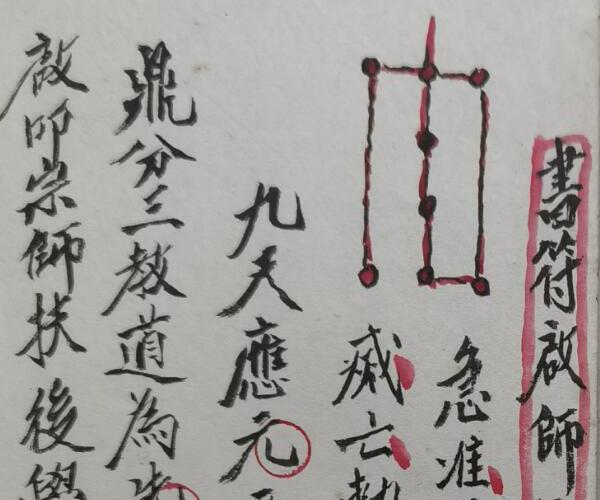 書符啟師
急准
滅亡
九天應元
鼎分三教道為
啟叩宗師扶後學